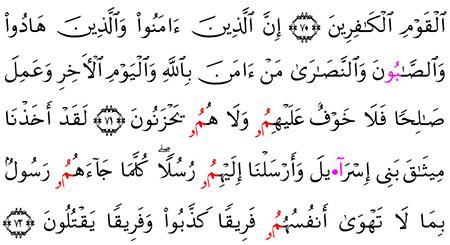 اَ۬لْقَوْمِ اِ۬لْكَٰفِرِينَ ۝٧٥ إِنَّ اَ۬لَّذِينَ ءَامَنُواْ وَالَّذِينَ هَادُواْ
وَالصَّٰبُونَ وَالنَّصَٰرَىٰ مَنْ ءَامَنَ بِاللَّهِ وَالْيَوْمِ اِ۬لْأٓخِرِ وَعَمِلَ
صَٰلِحًا فَلَا خَوْفٌ عَلَيْهِمُۥ وَلَا هُمُۥ يَحْزَنُونَ ۝٧١ لَقَدْ أَخَذْنَا
مِيثَٰقَ بَنِى إِسْرَآءِيلَ وَأَرْسَلْنَا إِلَيْهِمُۥ رُسُلًاۖ كُلَّمَا جَآءَهُمُۥ رَسُولٌۢ
بِمَا لَا تَهْوَىٰ أَنفُسُهُمُۥ فَرِيقًا كَذَّبُواْ وَفَرِيقًا يَقْتُلُونَ ۝٧٢